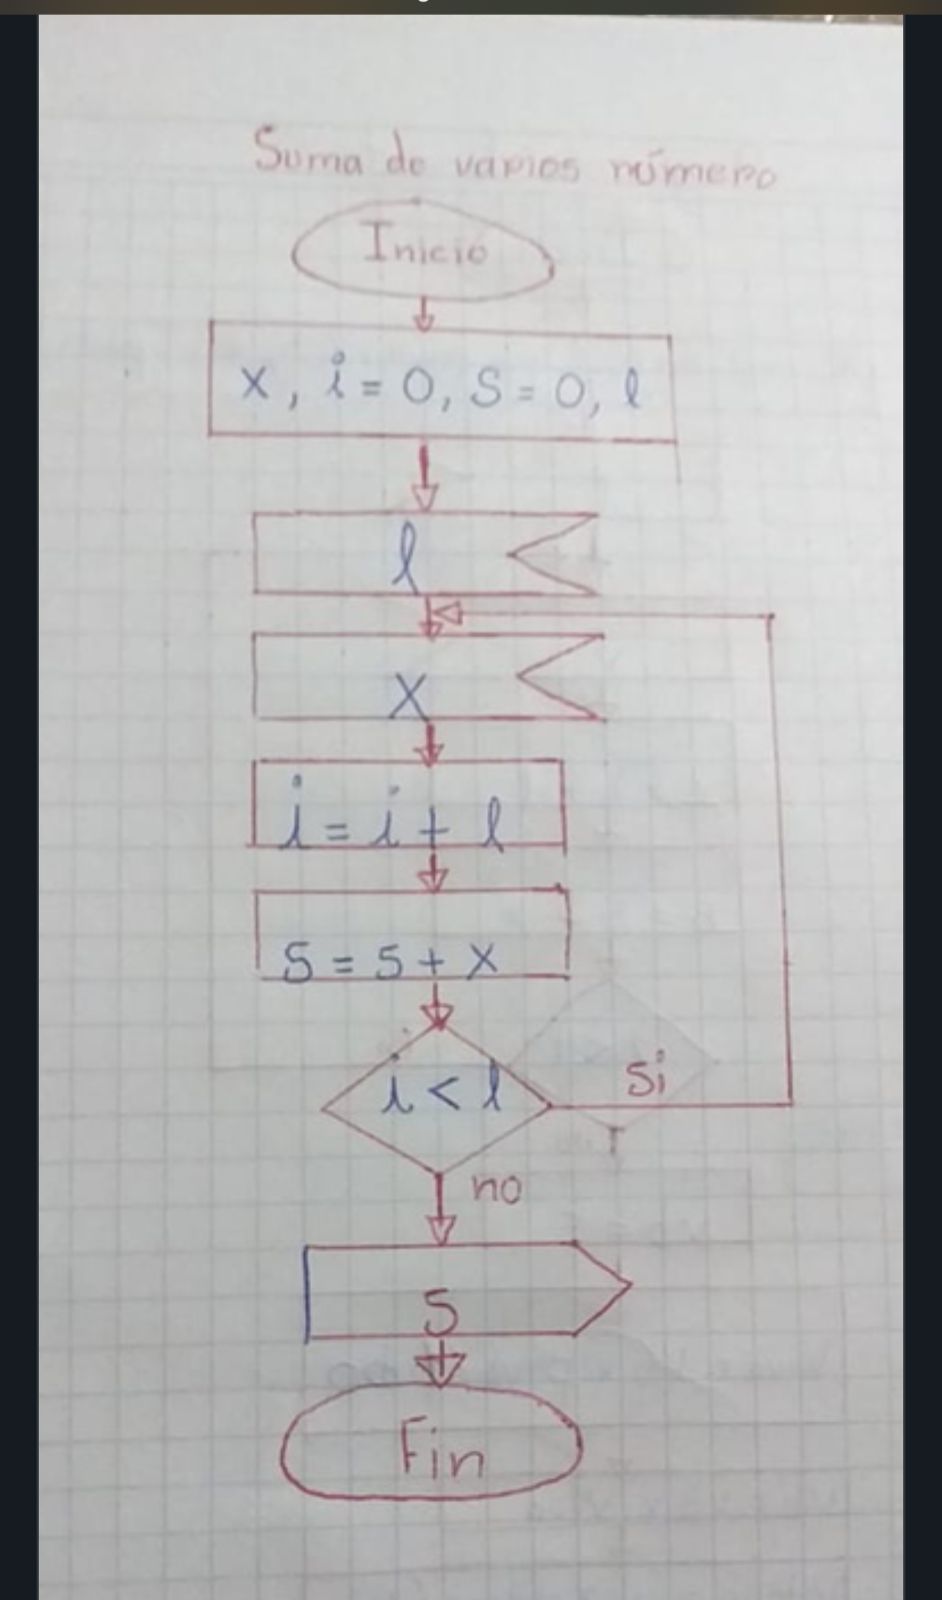 Suma de varios número
Inicio
x, i = 0, S = 0, l
l
x
i = i + l
S = S + x
i < l
si
no
S
Fin